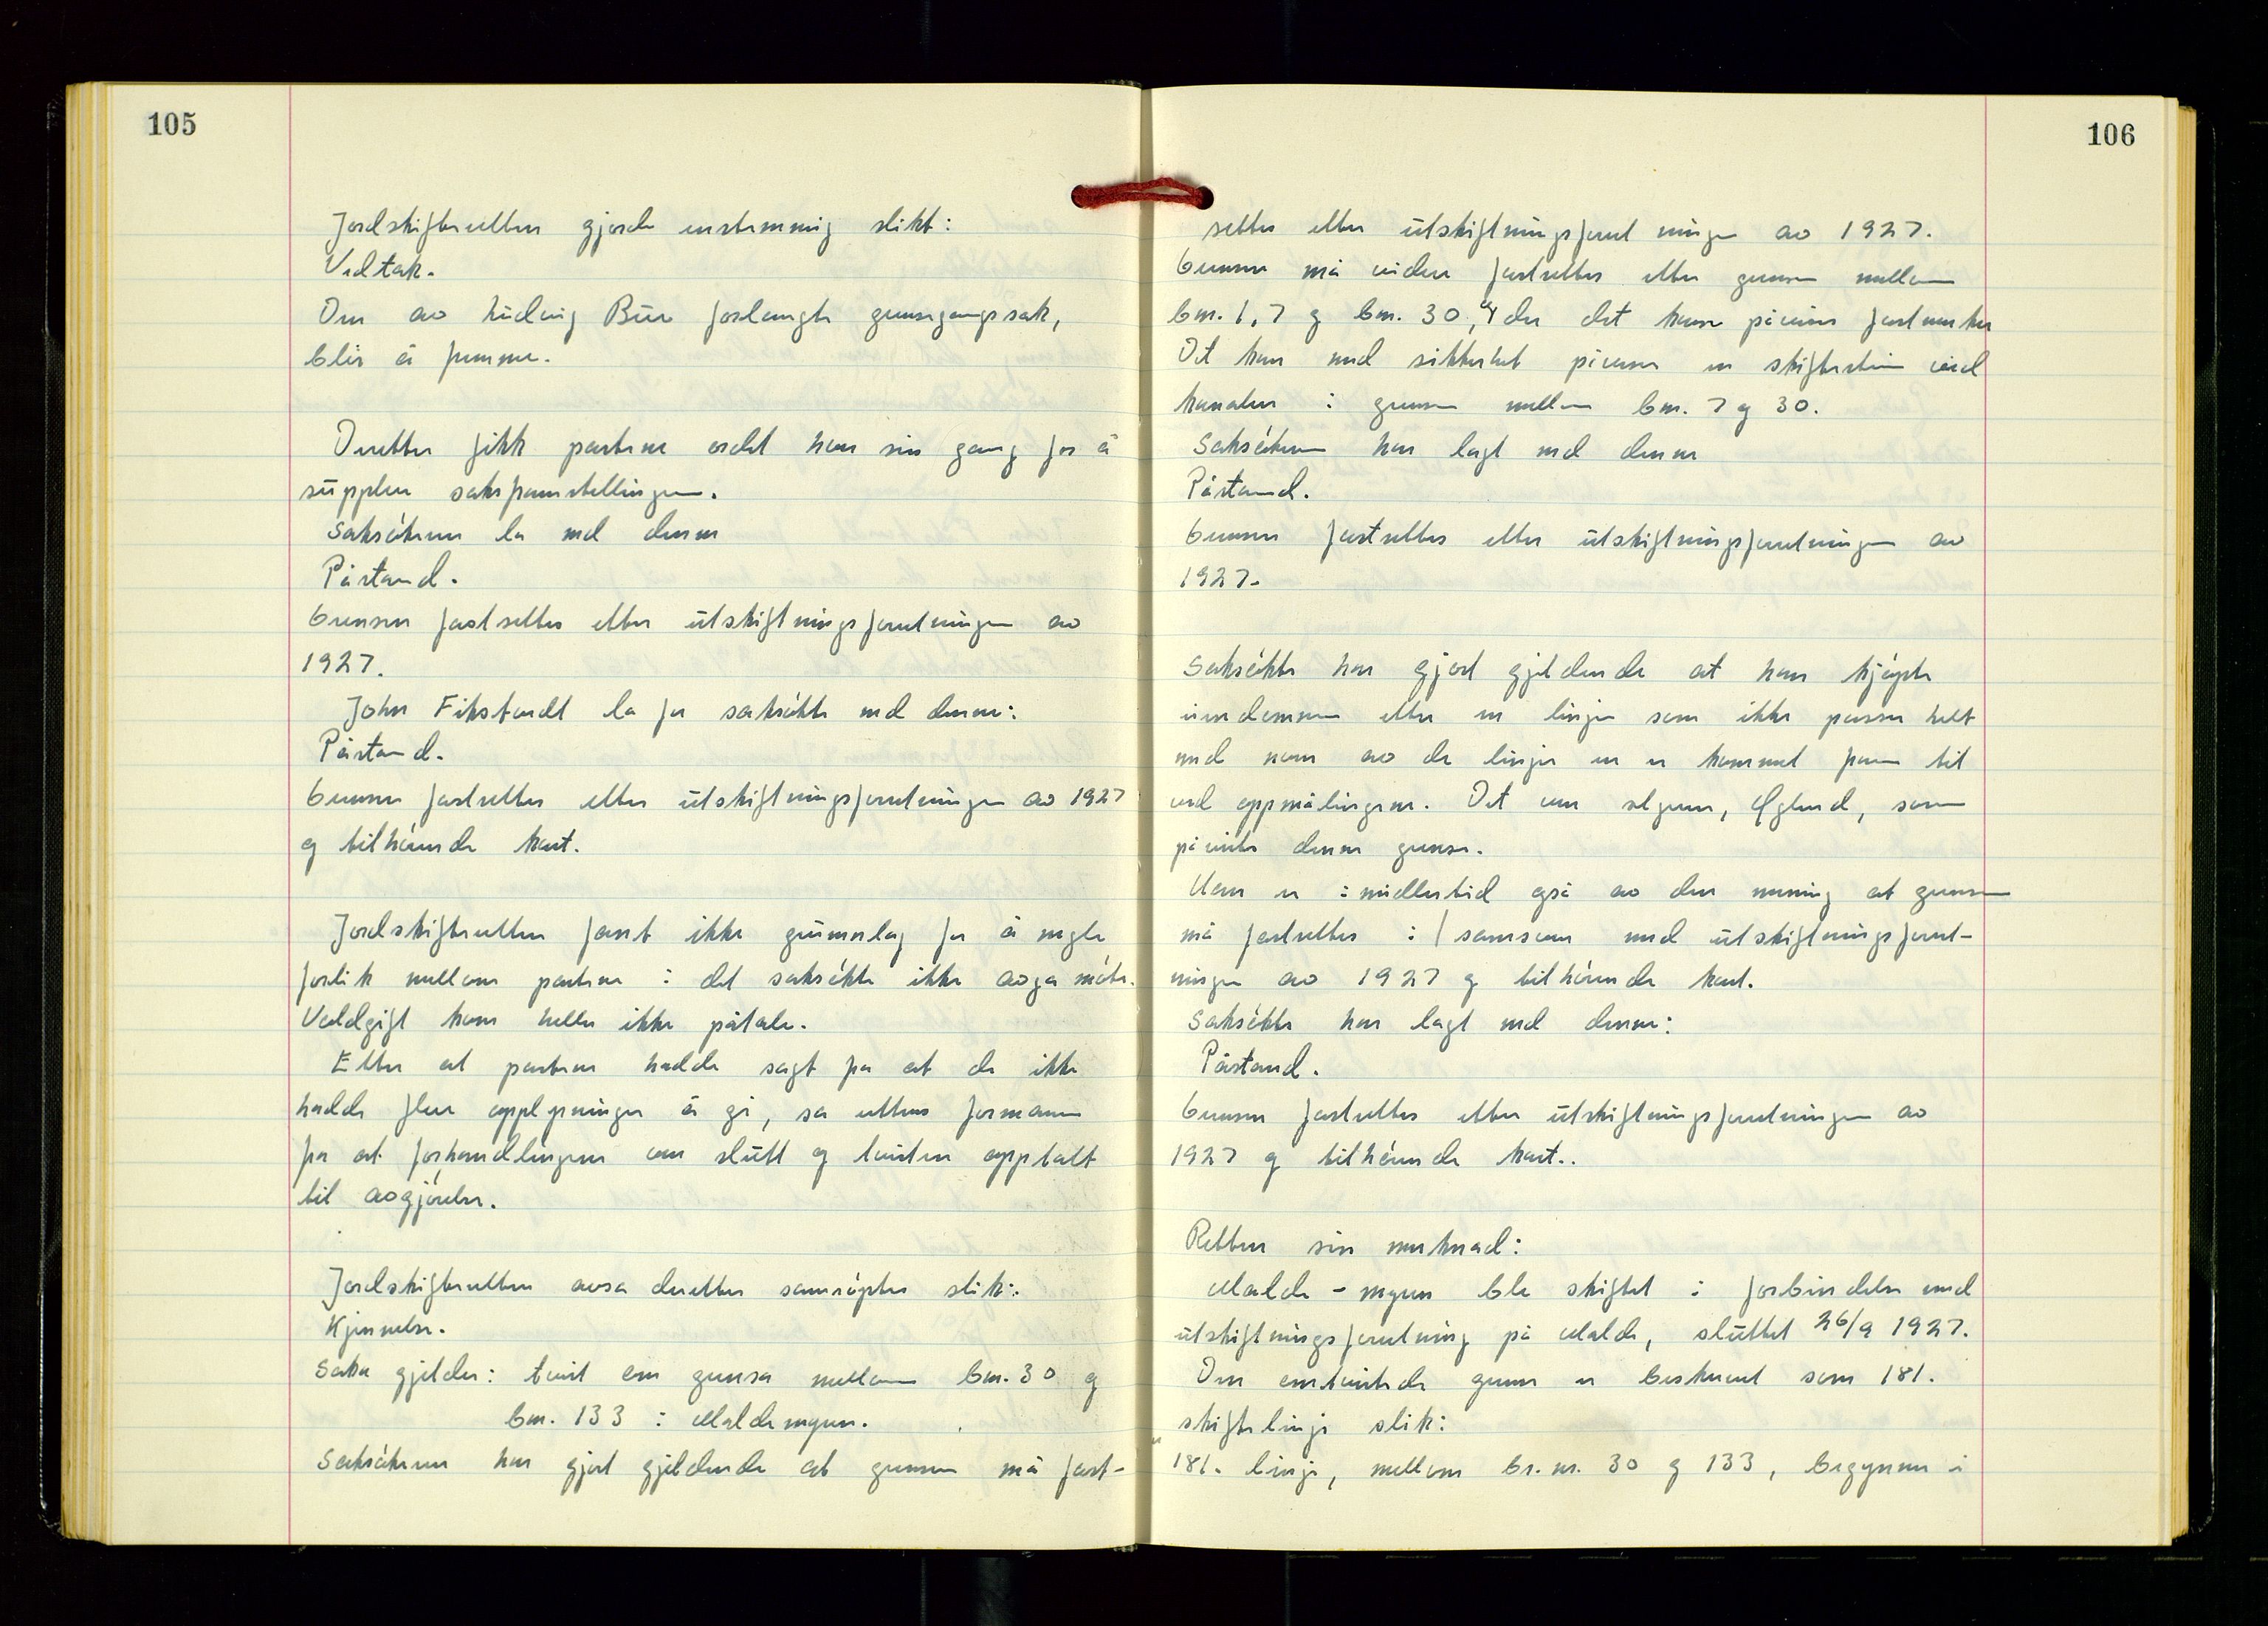 105
Jordskifteretten gjorde enstemmig slikt:
Vedtak.
Den av Ludvig Bue forlangte grensegangssak,
blir å fremme.
Deretter fikk partene ordet hver sin gang for å
supplere saksfremstillingen.
Saksøkeren la ned denne
Påstand.
Grensen fastsettes etter utskiftningsforretningen av
1927.
John Fikstvedt la for saksøkte ned denne:
Påstand.
Grensen fastsettes etter utskiftningsforretningen av 1927
og tilhørende kart.
Jordskifteretten fant ikke grunnlag for å megle
forlik mellom partene i det saksøkte ikke avga møte.
Voldgift kom heller ikke på tale.
Etter at partene hadde sagt fra at de ikke
hadde flere opplysninger å gi, sa rettens formann
fra at forhandlingene var slutt og tvisten opptatt
til avgjørelse.
Jordskifteretten avsa deretter samrøystes slik:
Kjennelse.
Saka gjelder: tvist om grensa mellom bnr. 30 og
bnr. 133 i Maldemyren.
Saksøkeren har gjort gjeldende at grensen må fast-
106
settes etter utskiftningsforretningen av 1927.
Grensen må videre fastsettes etter grensen mellom
bnr. 1, 7 og bnr. 30, og der det kan påvises fastmerker
Det kan med sikkerhet påvises en skiftestein ved
kanalen i grensen mellom bnr. 7 og 30.
Saksøkeren har lagt ned denne
Påstand.
Grensen fastsettes etter utskiftningsforretningen av
1927.
Saksøkte har gjort gjeldende at han kjøpte
eiendommen etter en linje som ikke passer helt
med noen av de linjer en er kommet frem til
ved oppmålingene. Det var selgeren, som
påviste denne grense.
Han er imidlertid også av den mening at grensen
må fastsettes i samsvar med utskiftningsforret-
ningen av 1927 og tilhørende kart.
Saksøkte har lagt ned denne:
Påstand.
Grensen fastsettes etter utskiftningsforretningen av
1927 og tilhørende kart..
Retten sin merknad:
Malde-myren ble skiftet i forbindelse med
utskiftningsforretning på Malde, sluttet 26/9 1927.
Den omtvistede grense er beskrevet som 181.
skiftelinje slik:
"181. linje, mellom br.nr. 30 og 133, begynner i